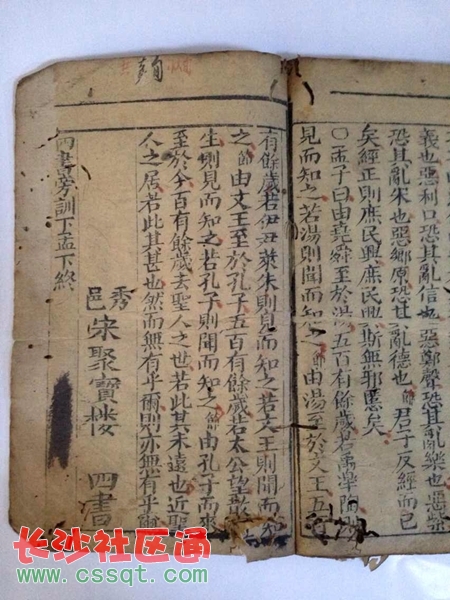 義也惡利口恐其亂信也惡鄭聲恐其亂樂也惡紫
恐其亂朱也惡鄉原恐其亂德也節君子反經而已
矣經正則庶民興庶民興斯無邪慝矣
〇孟子曰由堯舜至於湯五百有餘歲若禹臯陶
見而知之若湯則聞而知之節由湯至於文王五
有餘歲若伊尹萊朱則見而知之若文王則聞而知
之節由文王至於孔子五百有餘歲若太公望散
生則見而知之若孔子則聞而知之節由孔子而來
至於今百有餘歲去聖人之世若此其未遠也近聖
人之居若此其甚也然而無有乎爾則亦無有乎爾
秀邑宋聚寶樓 四書
四書旁訓下孟下終
长沙社区通
www.cssqt.com